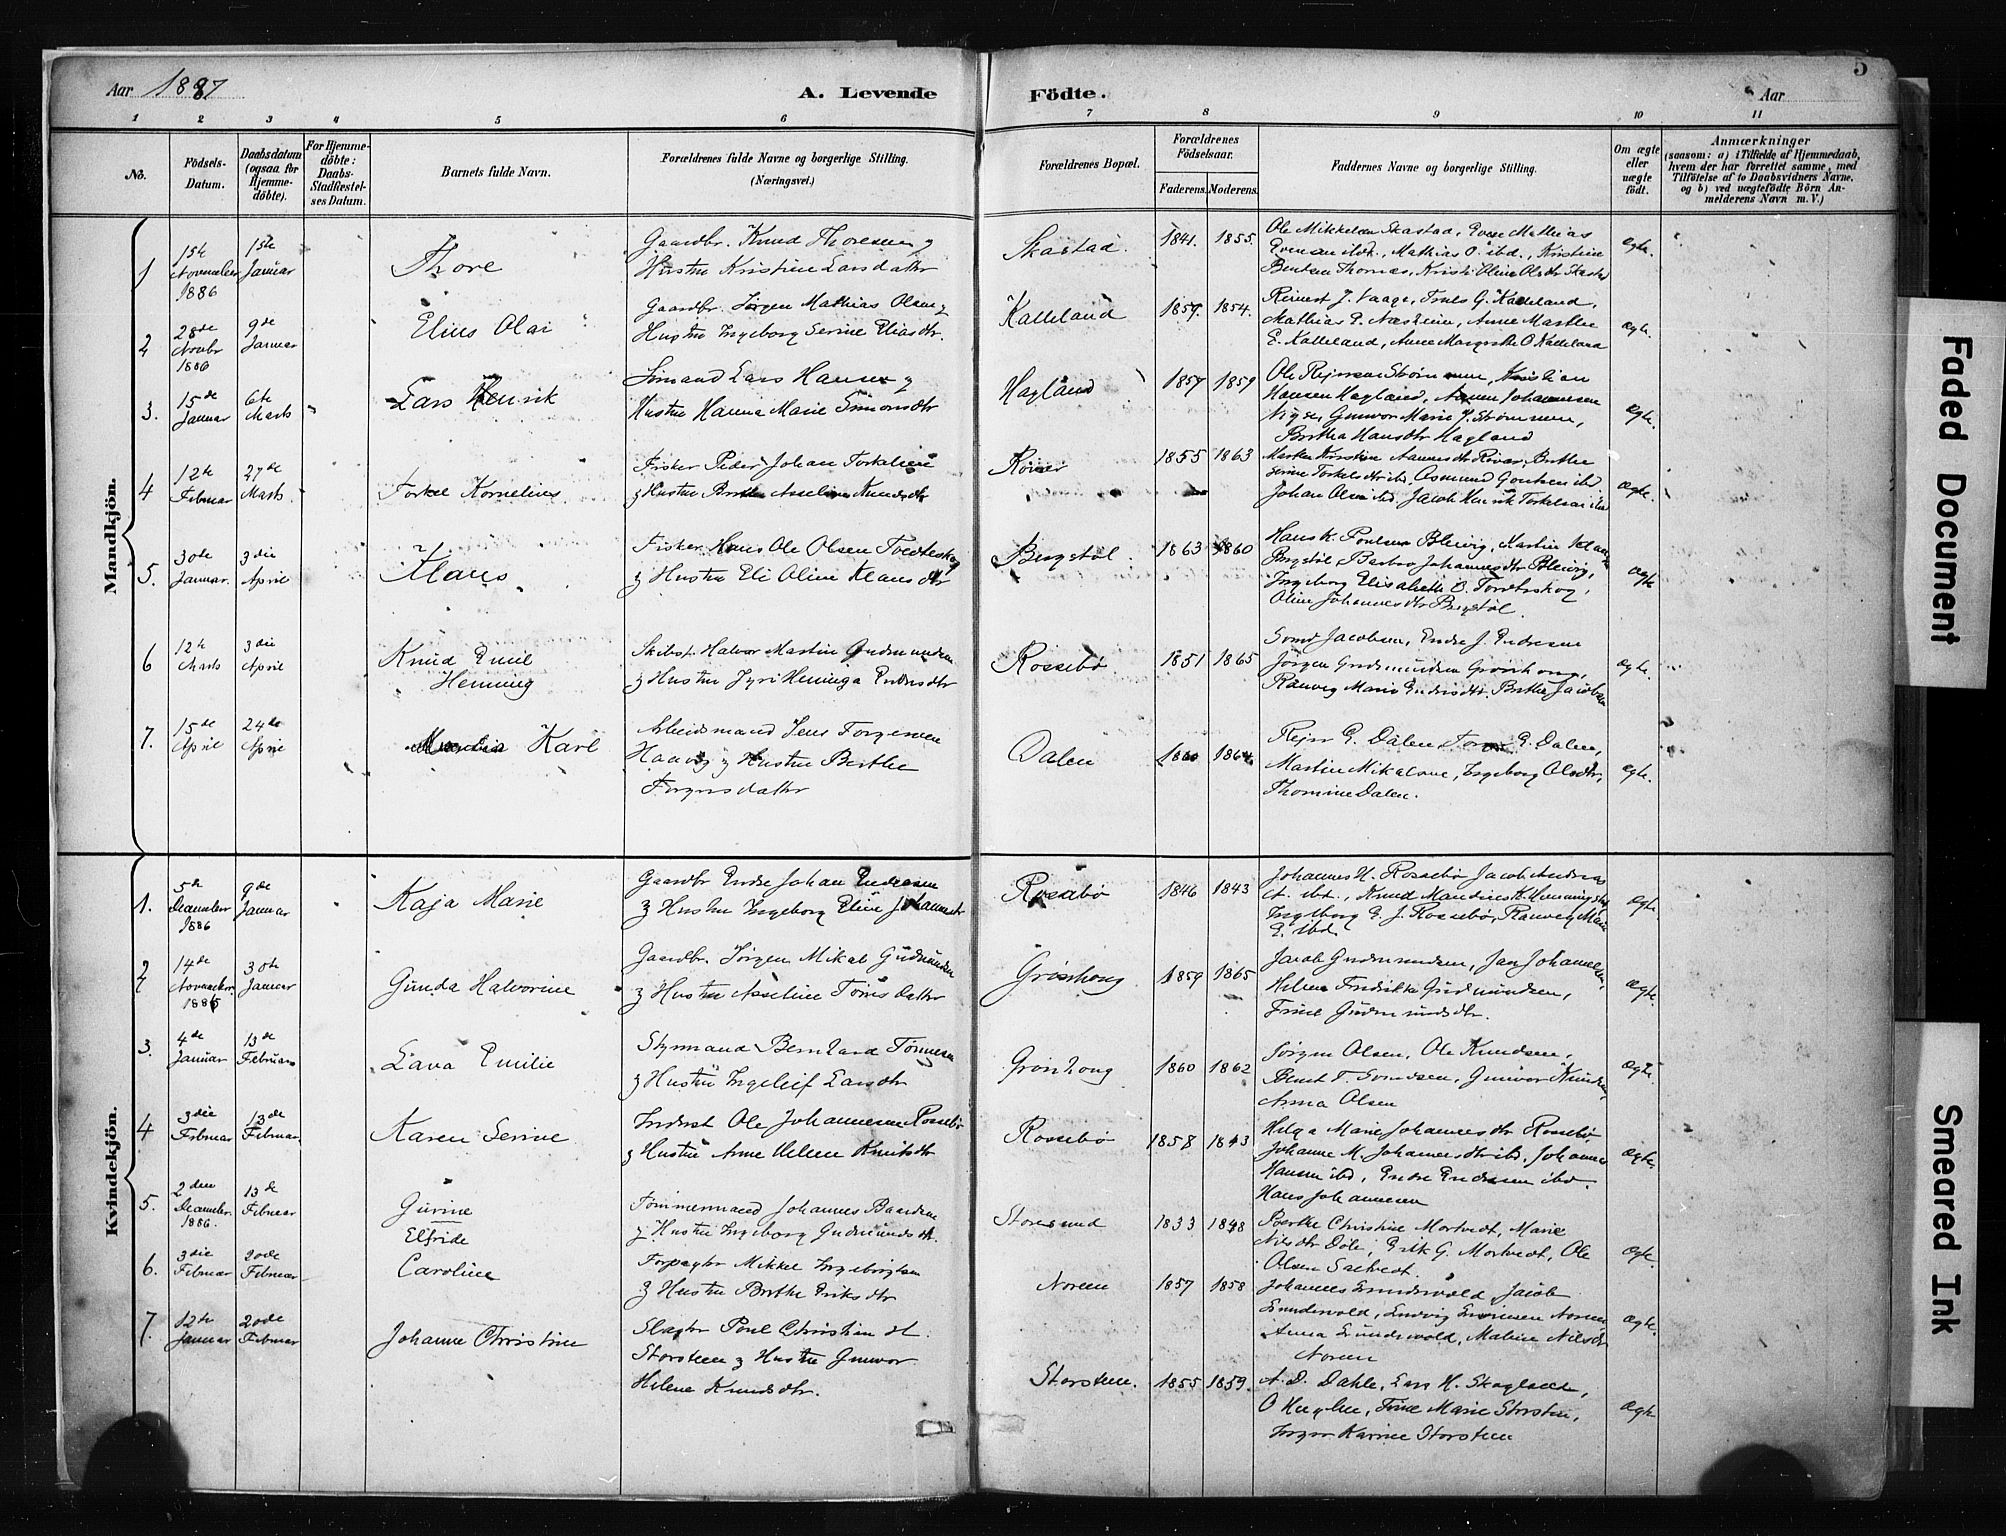 Aar 1887
A. Levende
Födte.
Aar
5
1 2 3 4 5 6 7 8 9 10 11
No.
Födsels-
Datum.
Daabsdatum
(ogsaa for
Hjemme-
döbte).
For Hjemme-
döbte:
Daabs-
Stadfæstel-
ses Datum.
Barnets fulde Navn.
Forældrenes fulde Navne og borgerlige Stilling.
(Næringsvei.)
Forældrenes Bopæl.
Forældrenes
Födselsaar.
Faderens. Moderens.
Faddernes Navne og borgerlige Stilling.
Om ægte
eller
uægte
födt.
Anmærkninger
(saasom: a) i Tilfælde af Hjemmedaab,
hvem der har forrettet samme, med
Tilföielse af to Daabsvidners Navne,
og b) ved uægtefödte Börn An-
melderens Navn m. V.)
Mandkjön.
1
15de
November
1886
1ste
Januar
Thore
Gaardbr. Knud Thoresen &
Hustru Kristine Larsdatter
Skastad.
1841. 1855.
Ole Mikkelsen Skastad, Even Mathias
Evensen ibd., Mathias O. ibd., Kristine
ægte.
2
28de
Novbr
1886
9de
Januar
Elius Olai
Gaardbr. Jørgen Mathias Olsen &
Hustru Ingeborg Serine Eliasdtr.
Kalleland
1857. 1854.
Reinert J. Vaage, G. Kalleland,
Mathias P. Næsheim, Anne Marthe
E. Kalleland, Anne Margrethe O Kalleland
ægte.
3.
15de
Januar
6te
Marts
Lars Henrik
Sömand Lars Hansen &
Hustru Hanna Marie Simonsdtr
Hagland
1857 1859
Ole Strömmen, Kristian
Hansen Hagland, Johannesen
Gunvor Marie J. Strömmen,
Berthe Hansdtr Hagland
ægte.
4
12te
Februar
27de
Marts
Torkel Kornelius.
Fisker Peder Johan Torkelsen
& Hustru Berthe Asseline Knudsdtr
1855 1863
Marthe Kristine Berthe
Serine Torkelsdtr ibd, Osmund ibd
Johan Olsen ibd. Jacob Henrik Torkelsen ibd
ægte.
5.
30de
Januar.
3die
April
Klaus
Fisker Hans Ole Olsen
& Hustru Eli Oline Klausdtr
Bugstöl
1863 1860
Hans K. Poulsen Blewig, Martin Klausen
Bugstöl Barbro Johannesdtr Blewig,
Ingeborg Elisabeth O.
Oline Johannesdtr Bugstöl.
ægte
6
12te
Marts
3die
April
Knud Emil
Henning
Skibst. Halvor Martin Gudmundsen
& Hustru Jyri Heninga Endresdtr
Rossebö
1851 1865
Jacobsen, Endre J. Endresen
Jörgen Gudmundsen Grönhoug,
Ranveg Marie Endresdtr. Berthe Jacobsen
ægte.
7.
15de
April
24de
April
Karl
Arbeidsmand Jens Torgersen
Haavig & Hustru Berthe
Torgersdatter
Dalen
1860 1864
E. Dalen E. Dalen,
Martin Mikalsen, Ingeborg Olsdtr,
Thomine Dalen.
ægte.
Kvindekjön.
1.
5de
December
1886
9de
Januar
Kaja Marie
Gaardbr Endre Johan Endresen
& Hustru Ingeborg Eline Johannesdtr
Rossebö
1846 1843
Johannes H. Rossebö Jacob Andreas
Ingeborg E. J. Rossebö, Ranveg Marie
E. ibd.
ægte.
2
14de
November
1886
30te
Januar
Gunda Halvorine
Gaardbr. Jörgen Mikal Gudmundsen
& Hustru Asseline Tönnesdatter
Grönhoug
1859 1865
Jacob Gudmundsen, Jan Johannesen,
Helene Fredrikke Gudmundsen,
Trine Gudmundsdtr.
ægte.
3.
4de
Januar
13de
Februar
Lava Emilie
Styrmand Bernhard Tönnesen
& Hustru Ingeleif Larsdtr
Grönhoug
1860 1862
Jörgen Olsen, Ole Knudsen,
Bernt T. Gunvor Knudsen,
Anna Olsen
ægte.
4
3die
Februar
13de
Februar
Karen Serine
Inderst Ole Johannesen Rossebö
& Hustru Anne Helene Knudsdtr
Rossebö
1858 1843
Helga Marie Johannesdtr Rossebö
Johanne M. Johannesdtr ibd. Johannes
Hansen ibd, Endre Endresen ibd.
Hans Johannesen
ægte.
5.
2den
December.
1886.
13de
Februar
Gurine
Elfride
Tömmermand Johannes Baardsen
& Hustru Ingeborg Gudmundsdtr.
Storesund
1833 1848
Berthe Christine Mortvedt, Marie
Nilsdtr Döle, Erik G. Mortvedt, Ole
Olsen Saltvedt.
ægte.
6.
3die
Februar
20de
Februar
Caroline
Forpagter Mikkel Ingebrigtsen
& Hustru Berthe Eriksdtr
Noreen
1857 1858
Johannes Lundevold, Jacob
Lundevold, Ludvig Noreen,
Anna Lundevold, Malene Nilsdtr
Noreen
ægte.
7.
12te
Januar
20de
Februar
Johanne Christine
Slagter Poul Christian
Storsteen & Hustru Gunvor
Helene Knudsdtr.
Storsteen.
1855 1859.
A. D. Dahle, Lars H.
Trine Marie Storsteen,
Inger Karine Storsteen
ægte
Faded Document
Smeared Ink